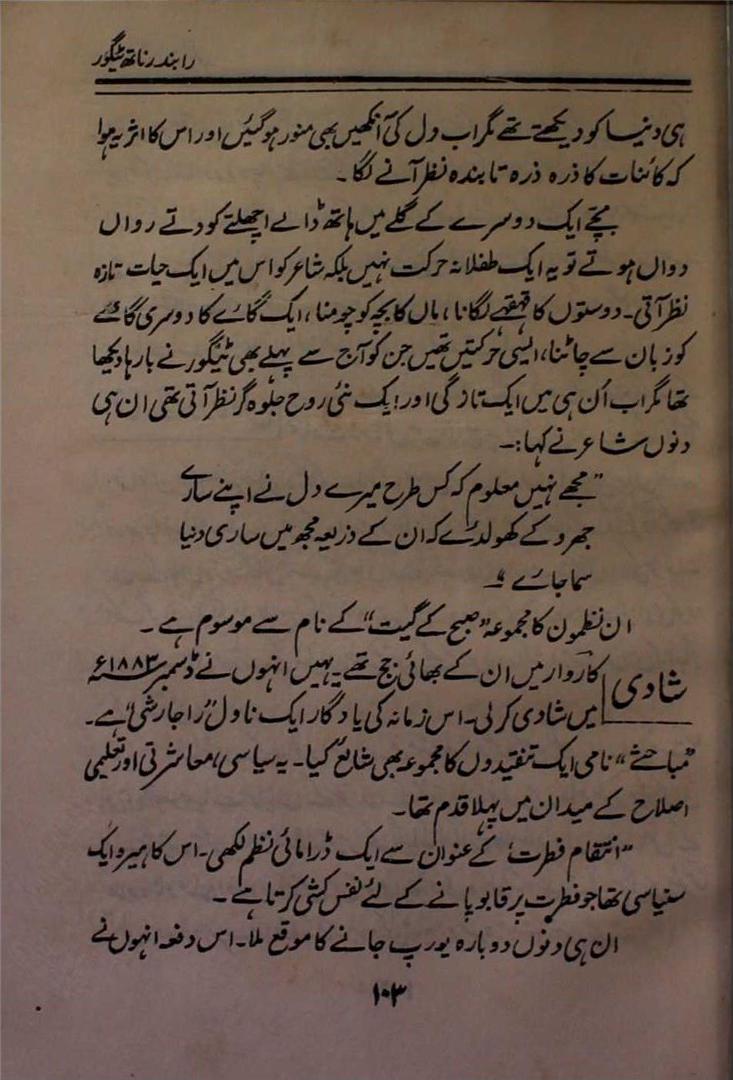 رابندرناتھ ٹیگور
ہی دنیا کو دیکھتے تھے مگر اب دل کی آنکھیں بھی منور ہوگئیں اور اس کا اثر یہ ہوا
کہ کائنات کا ذرہ ذرہ تابندہ نظر آنے لگا۔
بچے ایک دوسرے کے گلے میں ہاتھ ڈالے اچھلتے کودتے رواں
دواں ہوتے تو یہ ایک طفلانہ حرکت نہیں بلکہ شاعر کو اس میں ایک حیات تازہ
نظر آتی۔ دوستوں کا قہقہے لگانا، ماں کا بچہ کو چومنا، ایک گائے کا دوسری گائے
کو زبان سے چاٹنا، ایسی حرکتیں تھیں جن کو آج سے پہلے بھی ٹیگور نے بارہا دیکھا
تھا مگر اب اُن ہی میں ایک تازگی اور ایک نئی روح جلوہ گر نظر آتی تھی ان ہی
دنوں شاعر نے کہا:۔
"مجھے نہیں معلوم کہ کس طرح میرے دل نے اپنے سارے
جھروکے کھولدئے کہ ان کے ذریعہ مجھ میں ساری دنیا
سما جائے"۔
ان نظموں کا مجموعہ "صبح کے گیت" کے نام سے موسوم ہے۔
شادی
کاروار میں ان کے بھائی جج تھے یہیں انہوں نے ڈسمبر ۱۸۸۳ء
میں شادی کرلی۔ اس زمانہ کی یادگار ایک ناول "راجارشی" ہے۔
"مباحثے" نامی ایک تنقیدوں کا مجموعہ بھی شائع کیا۔ یہ سیاسی، معاشرتی اور تعلیمی
اصلاح کے میدان میں پہلا قدم تھا۔
"انتقام فطرت" کے عنوان سے ایک ڈرامائی نظم لکھی۔ اس کا ہیرو ایک
سنیاسی تھا جو فطرت پر قابو پانے کے لئے نفس کشی کرتا ہے۔
ان ہی دنوں دوبارہ یورپ جانے کا موقع ملا۔ اس دفعہ انہوں نے
۱۰۳